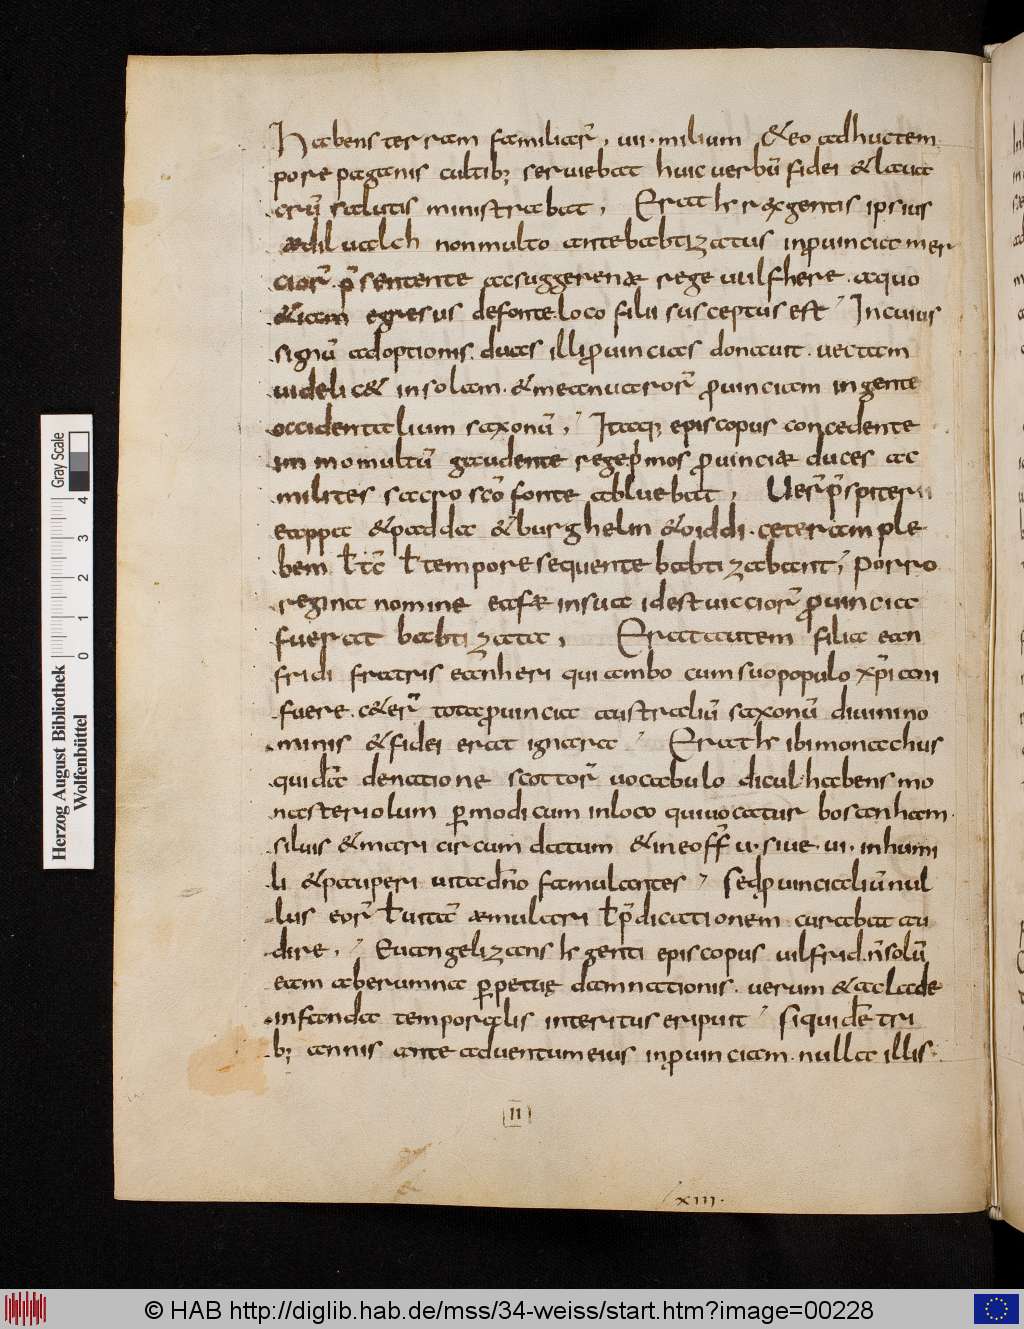 Habens terram familiar̄, uii· milium &eo adhuc tem
pore paganis cultib; seruiebat huic uerbū fidei &laua
crū salutis ministrabat, Erat h̄ rex gentis ipsius
ædiluualch non multo ante babtizatus inꝓuincia mer
cior̄· p̄sentente acsuggerente rege uulfhere· aquo
&iam egresus defonte loco filii susceptus est; Incuius
signū adoptionis· duas illi ꝓuincias donauit· uectam
uidelic& insolam· &meanuaroror̄ ꝓuinciam ingente
occidentalium saxonū; Itaq; episcopus concedente
im mo multū gaudente rege p̄mos ꝓuinciæ duces ac
milites sacro sc̄o fonte abluebat, Uer̄ p̄spiteri
eappa &padda &burghelm &oiddi· ceteram ple
bem ł tc̄ ł tempore sequente babtizabant; Porro
regina nomine eafæ insua id est uuiccior̄ ꝓuincia
fuerat babtizata, Erat autem filia ean
fridi fratris eanheri qui ambo cum suo populo xp̄iani
fuere· c&er̄ tota ꝓuincia australiū saxonū diuini no
minis &fidei erat ignara; Erat h̄ ibi monachus
quidā denatione scottor̄ uocabulo dicul· habens mo
nasteriolum ꝑmodicum inloco qui uocatur bosanham·
siluis &mari circumdatum &ineo ff̄r u· siue· ui· inhumi
li &pauperi uita dn̄o famulantes; Sed ꝓuincialiū nul
lus eor̄ ł uitā æmulari ł p̄dicationem curabat au
dire; Euangelizans h̄ genti episcopus uilfrid· n̄ solū
eam aberumna ꝑpetuę damnationis· uerum &aclade
infanda temporalis interitus eripuit; Siquidē tri
b; annis ante aduentum eius inꝓuinciam· nulla illis·
II
XIII·
Herzog August Bibliothek
Wolfenbüttel
0 1 2 3 4
Gray Scale
© HAB http://diglib.hab.de/mss/34-weiss/start.htm?image=00228